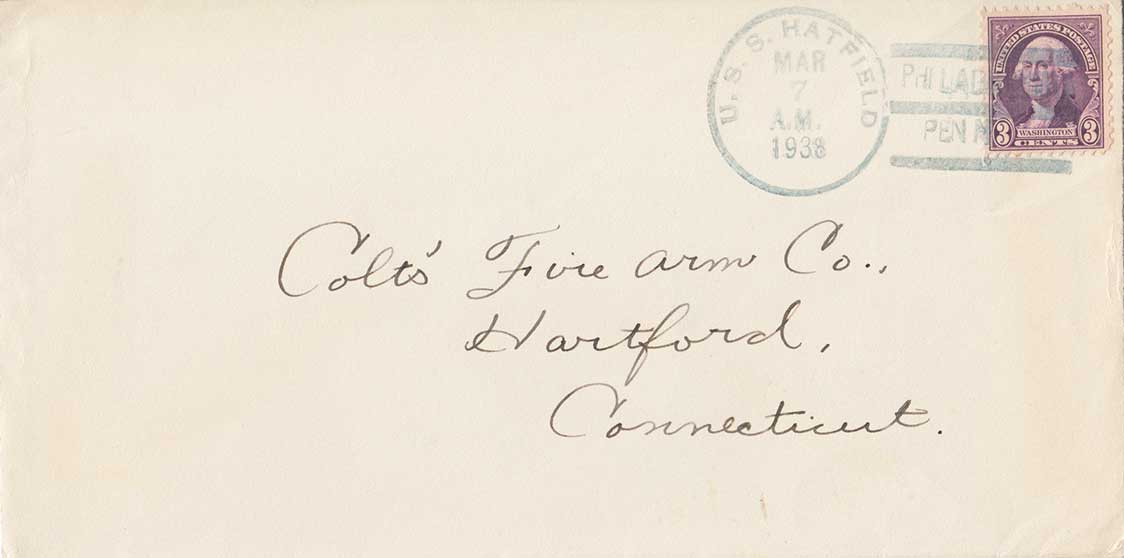 U. S. S. HATFIELD
MAR
7
A.M.
1938
PHILAD
PEN
UNITED STATES POSTAGE
3 WASHINGTON 3
CENTS
Colt's Fire arm Co.,
Hartford,
Connecticut.